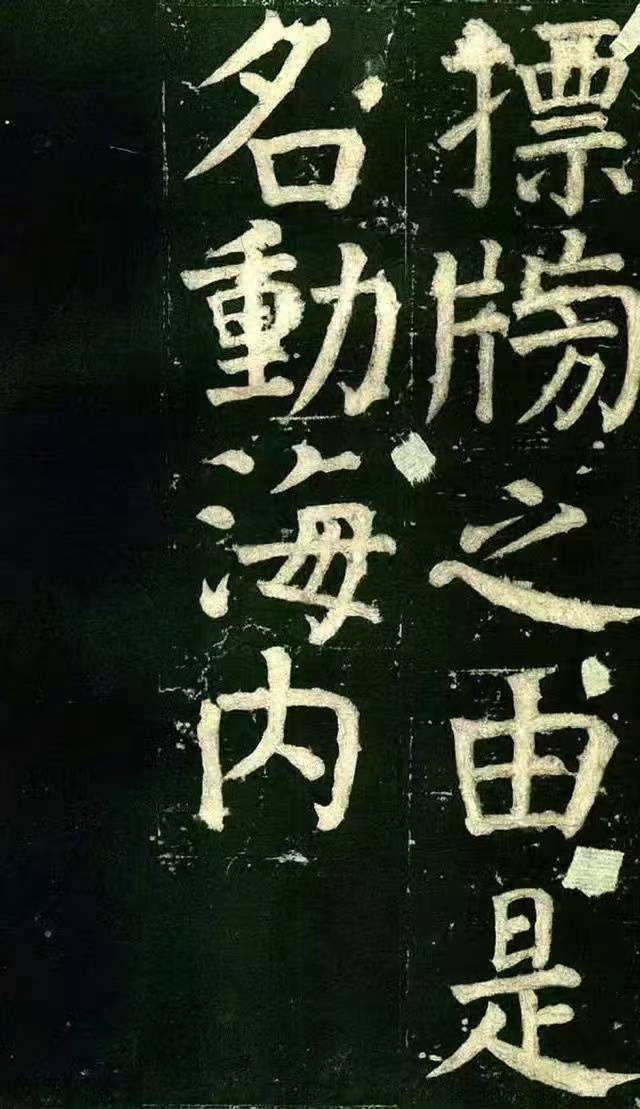 摽牓之由是
名動海内